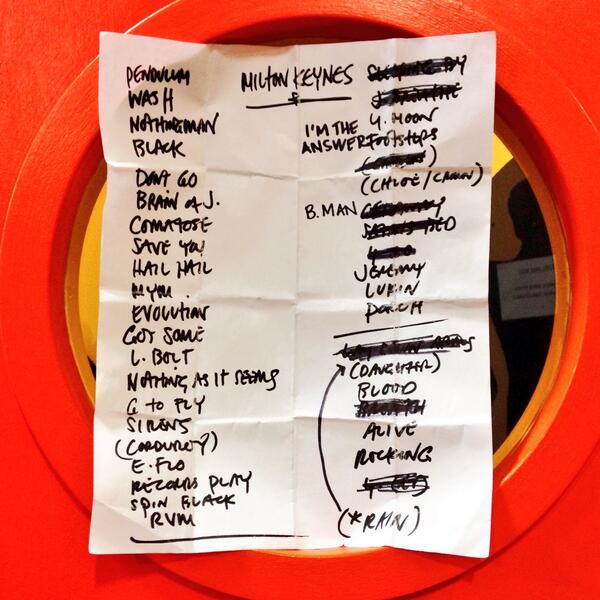 PENDULUM
WASH
NOTHINGMAN
BLACK
DON'T GO
BRAIN OF J.
COMATOSE
SAVE YOU
HAIL HAIL
MYM.
EVOLUTION
GOT SOME
L. BOLT
NOTHING AS IT SEEMS
G TO FLY
SIRENS
(CORDUROY)
E. FLO
RECORDS PLAY
SPIN BLACK
RVM
MILTON KEYNES
U. MOON
I'M THE ANSWER FOOTSTEPS
(CHLOE/CROWN)
B. MAN
JEREMY
LUKIN
PORCH
(DAUGHTER)
BLOOD
ALIVE
ROCKING
(*RAIN)